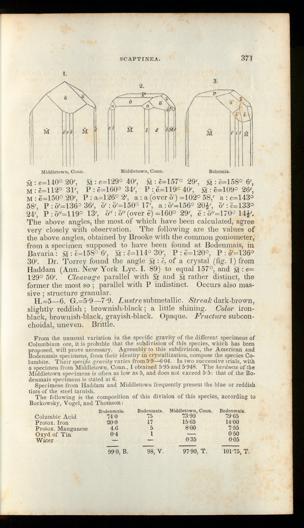 SCAPTINEA. 371
1. 2. 3.
Middletown, Conn. Middletown, Conn. Bohemia.
M̄ : e=140° 20′, M̄ : e=129° 40′, M̄ : ē=157° 29′, M̄ : ē=158° 6′,
M̆ : ē=112° 31′, P : ē=160° 34′, P : ē=119° 40′, M̄ : ē=109° 26′,
M̆ : ē=150° 29′, P : a=126° 2′, a : a (over ō′) =102° 58¼′, a : e=143°
58′, P : ō′=136° 36′, ō′ : ō′=150° 17′, a : ō′=156° 20½′, ō′ : ē=133°
24′, P : ō″=119° 13′, ō″ : ō″ (over ē) =160° 29′, ē : ō″=170° 14½′.
The above angles, the most of which have been calculated, agree
very closely with observation. The following are the values of
the above angles, obtained by Brooke with the common goniometer,
from a specimen supposed to have been found at Bodenmais, in
Bavaria: M̄ : ē=158° 6′, M̆ : ē=114° 30′, P : ē=120°, P : ō′=136°
30′. Dr. Torrey found the angle M̄ : ē, of a crystal (fig. 1) from
Haddam (Ann. New York Lyc. I. 89) to equal 157°, and M̄ : e=
129° 50′. Cleavage parallel with M̄ and M̆ rather distinct, the
former the most so; parallel with P indistinct. Occurs also mas-
sive; structure granular.
H.=5—6. G.=5·9—7·9. Lustre submetallic. Streak dark-brown,
slightly reddish; brownish-black; a little shining. Color iron-
black, brownish-black, grayish-black. Opaque. Fracture subcon-
choidal, uneven. Brittle.
From the unusual variation in the specific gravity of the different specimens of
Columbium ore, it is probable that the subdivision of this species, which has been
proposed, will prove necessary. Agreeably to this subdivision, the American and
Bodenmais specimens, from their identity in crystallization, compose the species Co-
lumbite. Their specific gravity varies from 5·9—6·01. In two successive trials, with
a specimen from Middletown, Conn., I obtained 5·95 and 5·948. The hardness of the
Middletown specimens is often as low as 5, and does not exceed 5·5: that of the Bo-
denmais specimens is stated at 6.
Specimens from Haddam and Middletown frequently present the blue or reddish
tints of the steel tarnish.
The following is the composition of this division of this species, according to
Borkowsky, Vogel, and Thomson:
Bodenmais. Bodenmais. Middletown, Conn. Bodenmais.
Columbic Acid 74·0 75 73·90 79·65
Protox. Iron 20·0 17 15·65 14·00
Protox. Manganese 4·6 5 8·00 7·55
Oxyd of Tin 0·4 1 — 0·50
Water — — 0·35 0·05
99·0, B. 98, V. 97·90, T. 101·75, T.